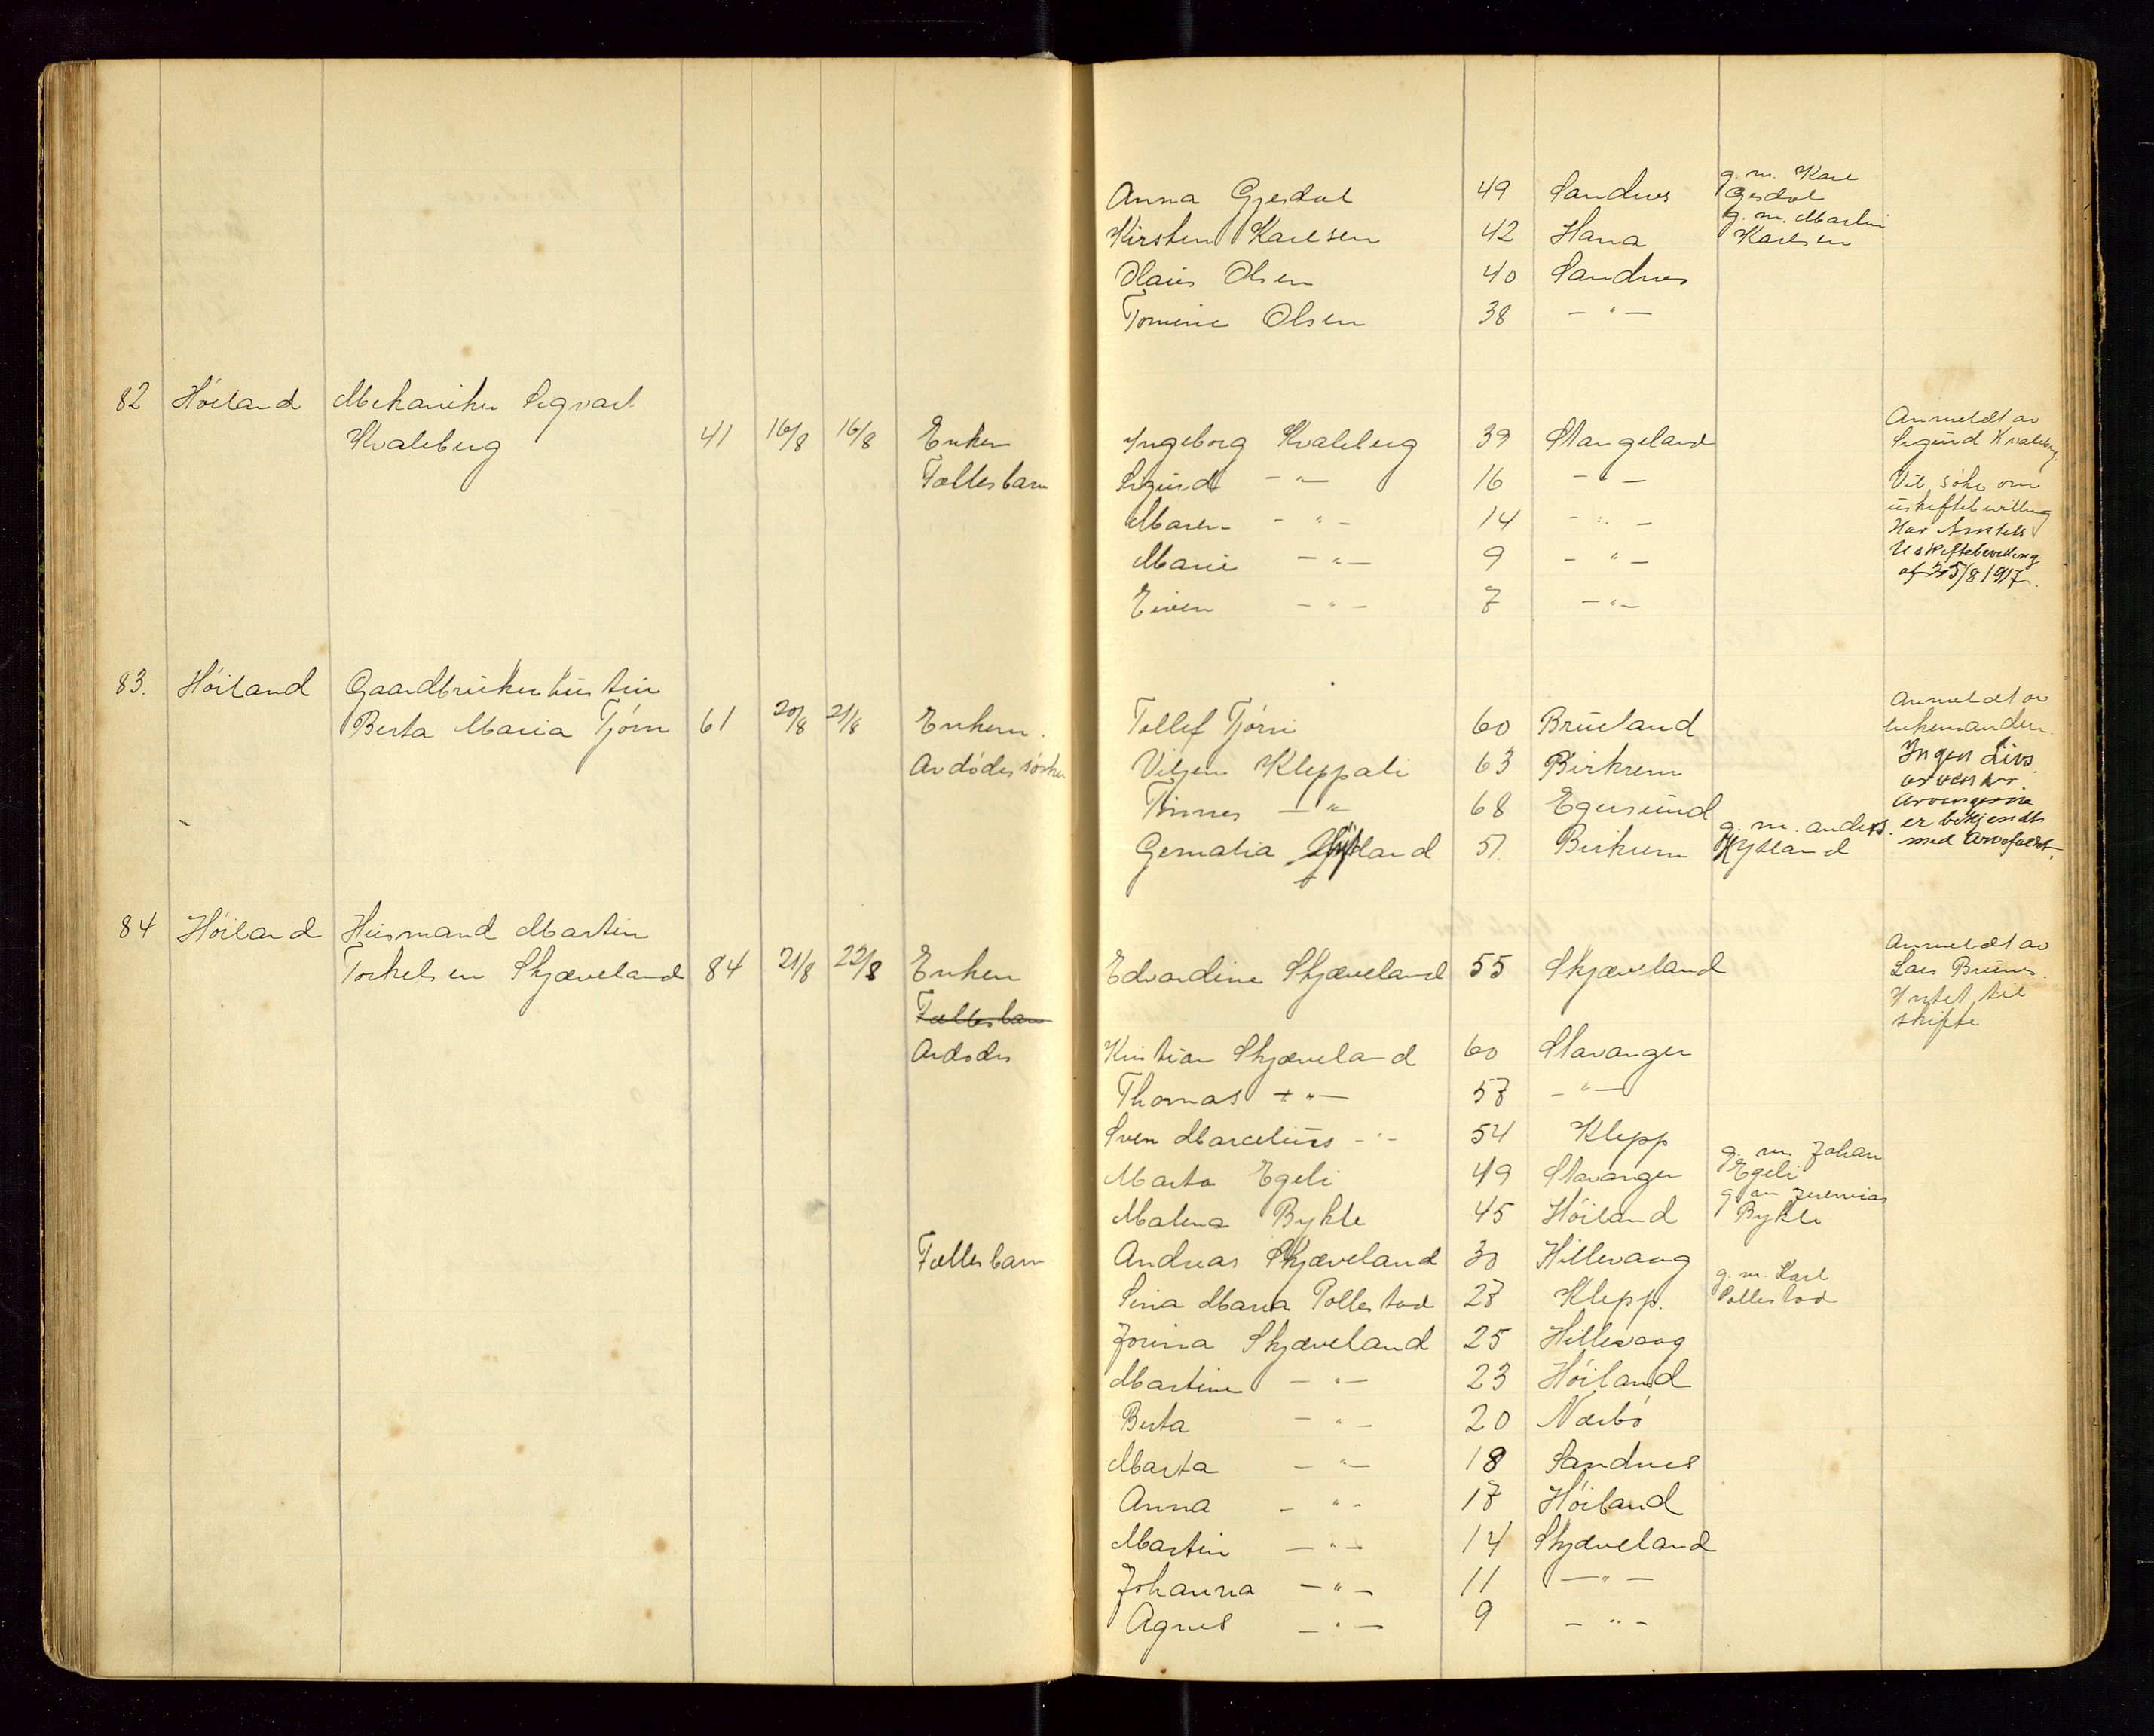 Anna Gjesdal 49 Sandnes g. m. Karl Gjesdal
Kirsten Karlsen 42 Hana g. m. Martin Karlsen
Olaus Olsen 40 Sandnes
Tomine Olsen 38 — " —
82 Höiland Mekaniker Sigvart
Kvaleberg 41 16/8 16/8 Enken Ingeborg Kvaleberg 39 Stangeland Anmeldt av Sigurd Kvaleberg.
Fællesbarn Sigurd — " — 16 — " — Vil söke om
Maren — " — 14 — " — uskiftebevilling
Marie — " — 9 — " — Har Amtets Uskiftebevilling
Eiven — " — 7 — " — af 25/8 1917.
83. Höiland Gaardbrukerhustru
Berta Maria Tjörn 61 20/8 21/8 Enkem. Tollef Tjörn 60 Brueland Anmeldt av enkemanden.
Avdödes söskn Viljem Kleppali 63 Birkrem Ingen Livsarvinger.
Tönnes — " — 68 Egersund Arvingerne
Gematia Hytland 51. Birkrem g. m. Anders Hytland er bekjendt med Arvefaldet.
84 Höiland Husmand Martin
Torkelsen Skjæveland 84 21/8 22/8 Enken Edvardine Skjæveland 55 Skjæveland Anmeldt av Lars Bruns.
Fællesbarn Intet til skifte
Avdödes Kristian Skjæveland 60 Stavanger
Thomas — " — 57 — " —
Sven Marcelius — " — 54 Klepp
Marta Egeli 49 Stavanger g. m. Johan Egeli
Malena Bykle 45 Höiland g. m. Jeremias Bykle
Fællesbarn Andreas Skjæveland 30 Hillevaag
Sina Maria Pollestad 27 Klepp. g. m. Karl Pollestad
Jorina Skjæveland 25 Hillevaag
Martine — " — 23 Höiland
Berta — " — 20 Nærbö
Marta — " — 18 Sandnes
Anna — " — 17 Höiland
Martin — " — 14 Skjæveland
Johanna — " — 11 — " —
Agnes — " — 9 — " —